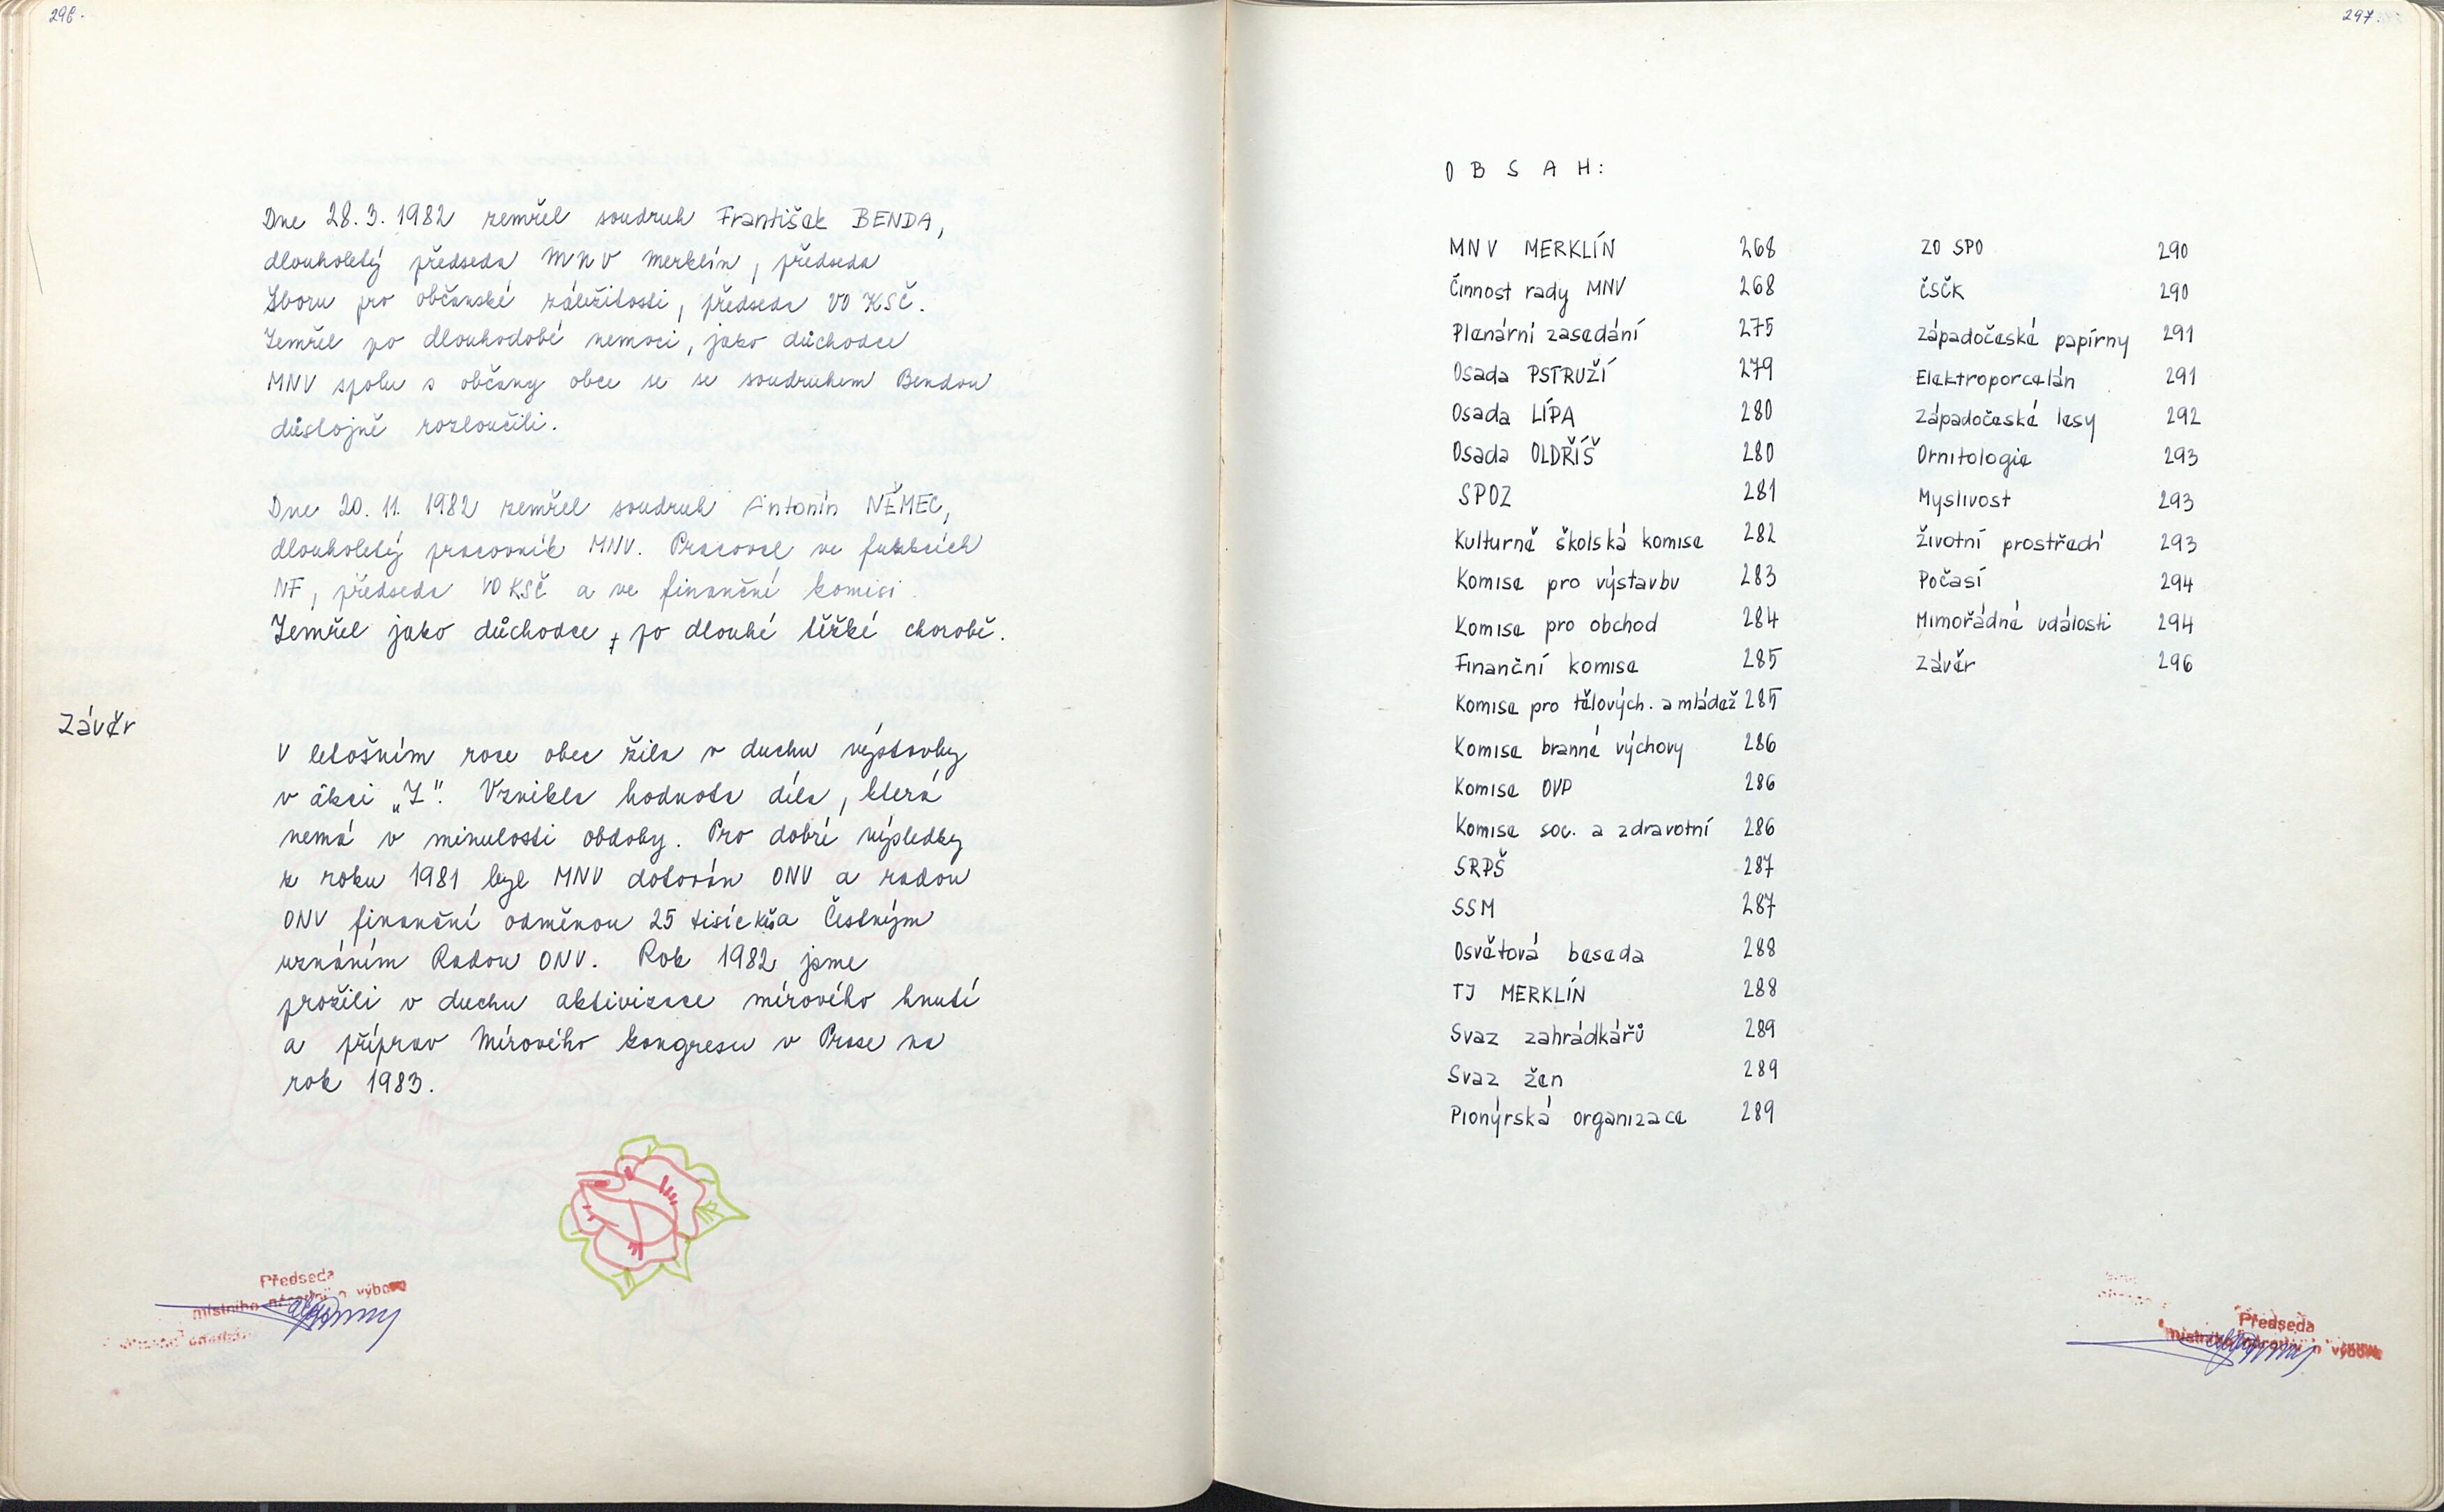 296.
Dne 28.3.1982 zemřel soudruh František BENDA,
dlouholetý předseda MNV Merklín, předseda
Sboru pro občanské záležitosti, předseda VO KSČ.
Zemřel po dlouhodobé nemoci, jako důchodce
MNV spolu s občany obce se se soudruhem Bendou
důstojně rozloučili.
Dne 20. 11. 1982 zemřel soudruh Antonín NĚMEC,
dlouholetý pracovník MNV. Pracoval ve funkcích
NF, předseda VO KSČ a ve finanční komisi.
Zemřel jako důchodce, po dlouhé těžké chorobě.
Závěr
V letošním roce obec žila v duchu výstavby
v akci „Z". Vznikla hodnota díla, která
nemá v minulosti obdoby. Pro dobré výsledky
z roku 1981 byl MNV dotován ONV a radou
ONV finanční odměnou 25 tisíc Kčs a Čestným
uznáním Radou ONV. Rok 1982 jsme
prožili v duchu aktivizace mírového hnutí
a příprav Mírového kongresu v Praze na
rok 1983.
Předseda
místního národního výboru
297.
O B S A H :
MNV MERKLÍN 268
Činnost rady MNV 268
Plenární zasedání 275
Osada PSTRUŽÍ 279
Osada LÍPA 280
Osada OLDŘÍŠ 280
SPOZ 281
Kulturně školská komise 282
Komise pro výstavbu 283
Komise pro obchod 284
Finanční komise 285
Komise pro tělových. a mládež 285
Komise branné výchovy 286
Komise OVP 286
Komise soc. a zdravotní 286
SRPŠ 287
SSM 287
Osvětová beseda 288
TJ MERKLÍN 288
Svaz zahrádkářů 289
Svaz žen 289
Pionýrská organizace 289
ZO SPO 290
ČSČK 290
Západočeské papírny 291
Elektroporcelán 291
Západočeské lesy 292
Ornitologie 293
Myslivost 293
Životní prostředí 293
Počasí 294
Mimořádné události 294
Závěr 296
Předseda
místního národního výboru